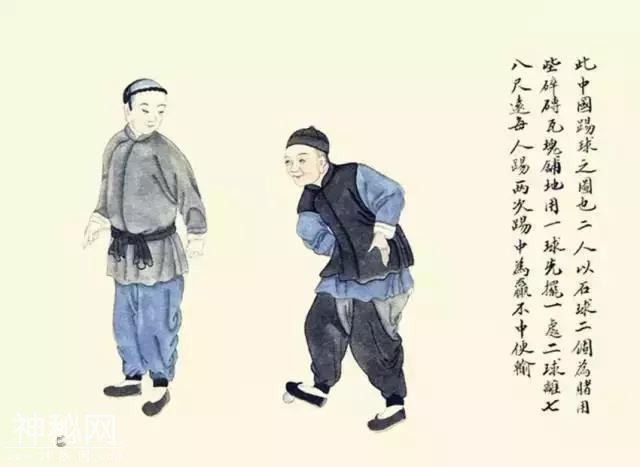 此中國踢球之圖也二人以石球二個為賭用
些碎磚瓦塊舖地用一球先擺一處二球離七
八尺遠每人踢兩次踢中為贏不中便輸
神秘网